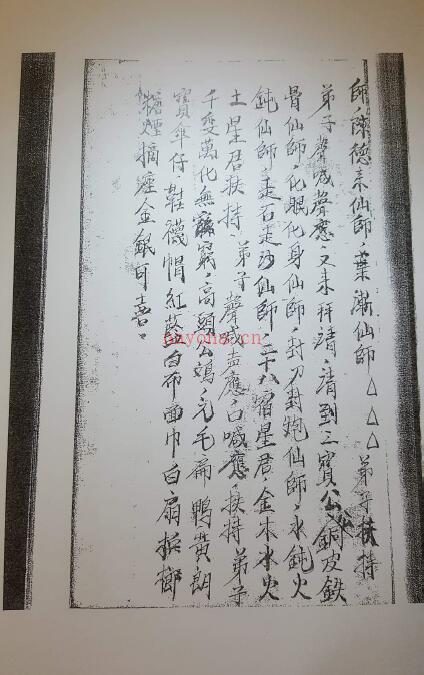 師陳德來仙師、葉漸仙師△△△弟子扶持
弟子聲喊聲應、又来拜請、請到三寶公、銅皮鉄
骨仙師、化眼化身仙師、封刀封炮仙師、水鈍火
鈍仙師、走石走沙仙師、二十八宿星君、金木水火
土星君扶持、弟子聲喊声應、口喊應扶持弟子
千变萬化無窮、高頭公鸡、毛扁鴨黄
寶傘仔鞋襪帽紅藍白布面巾白扇槟榔
煙金銀可喜。
onyona.cn